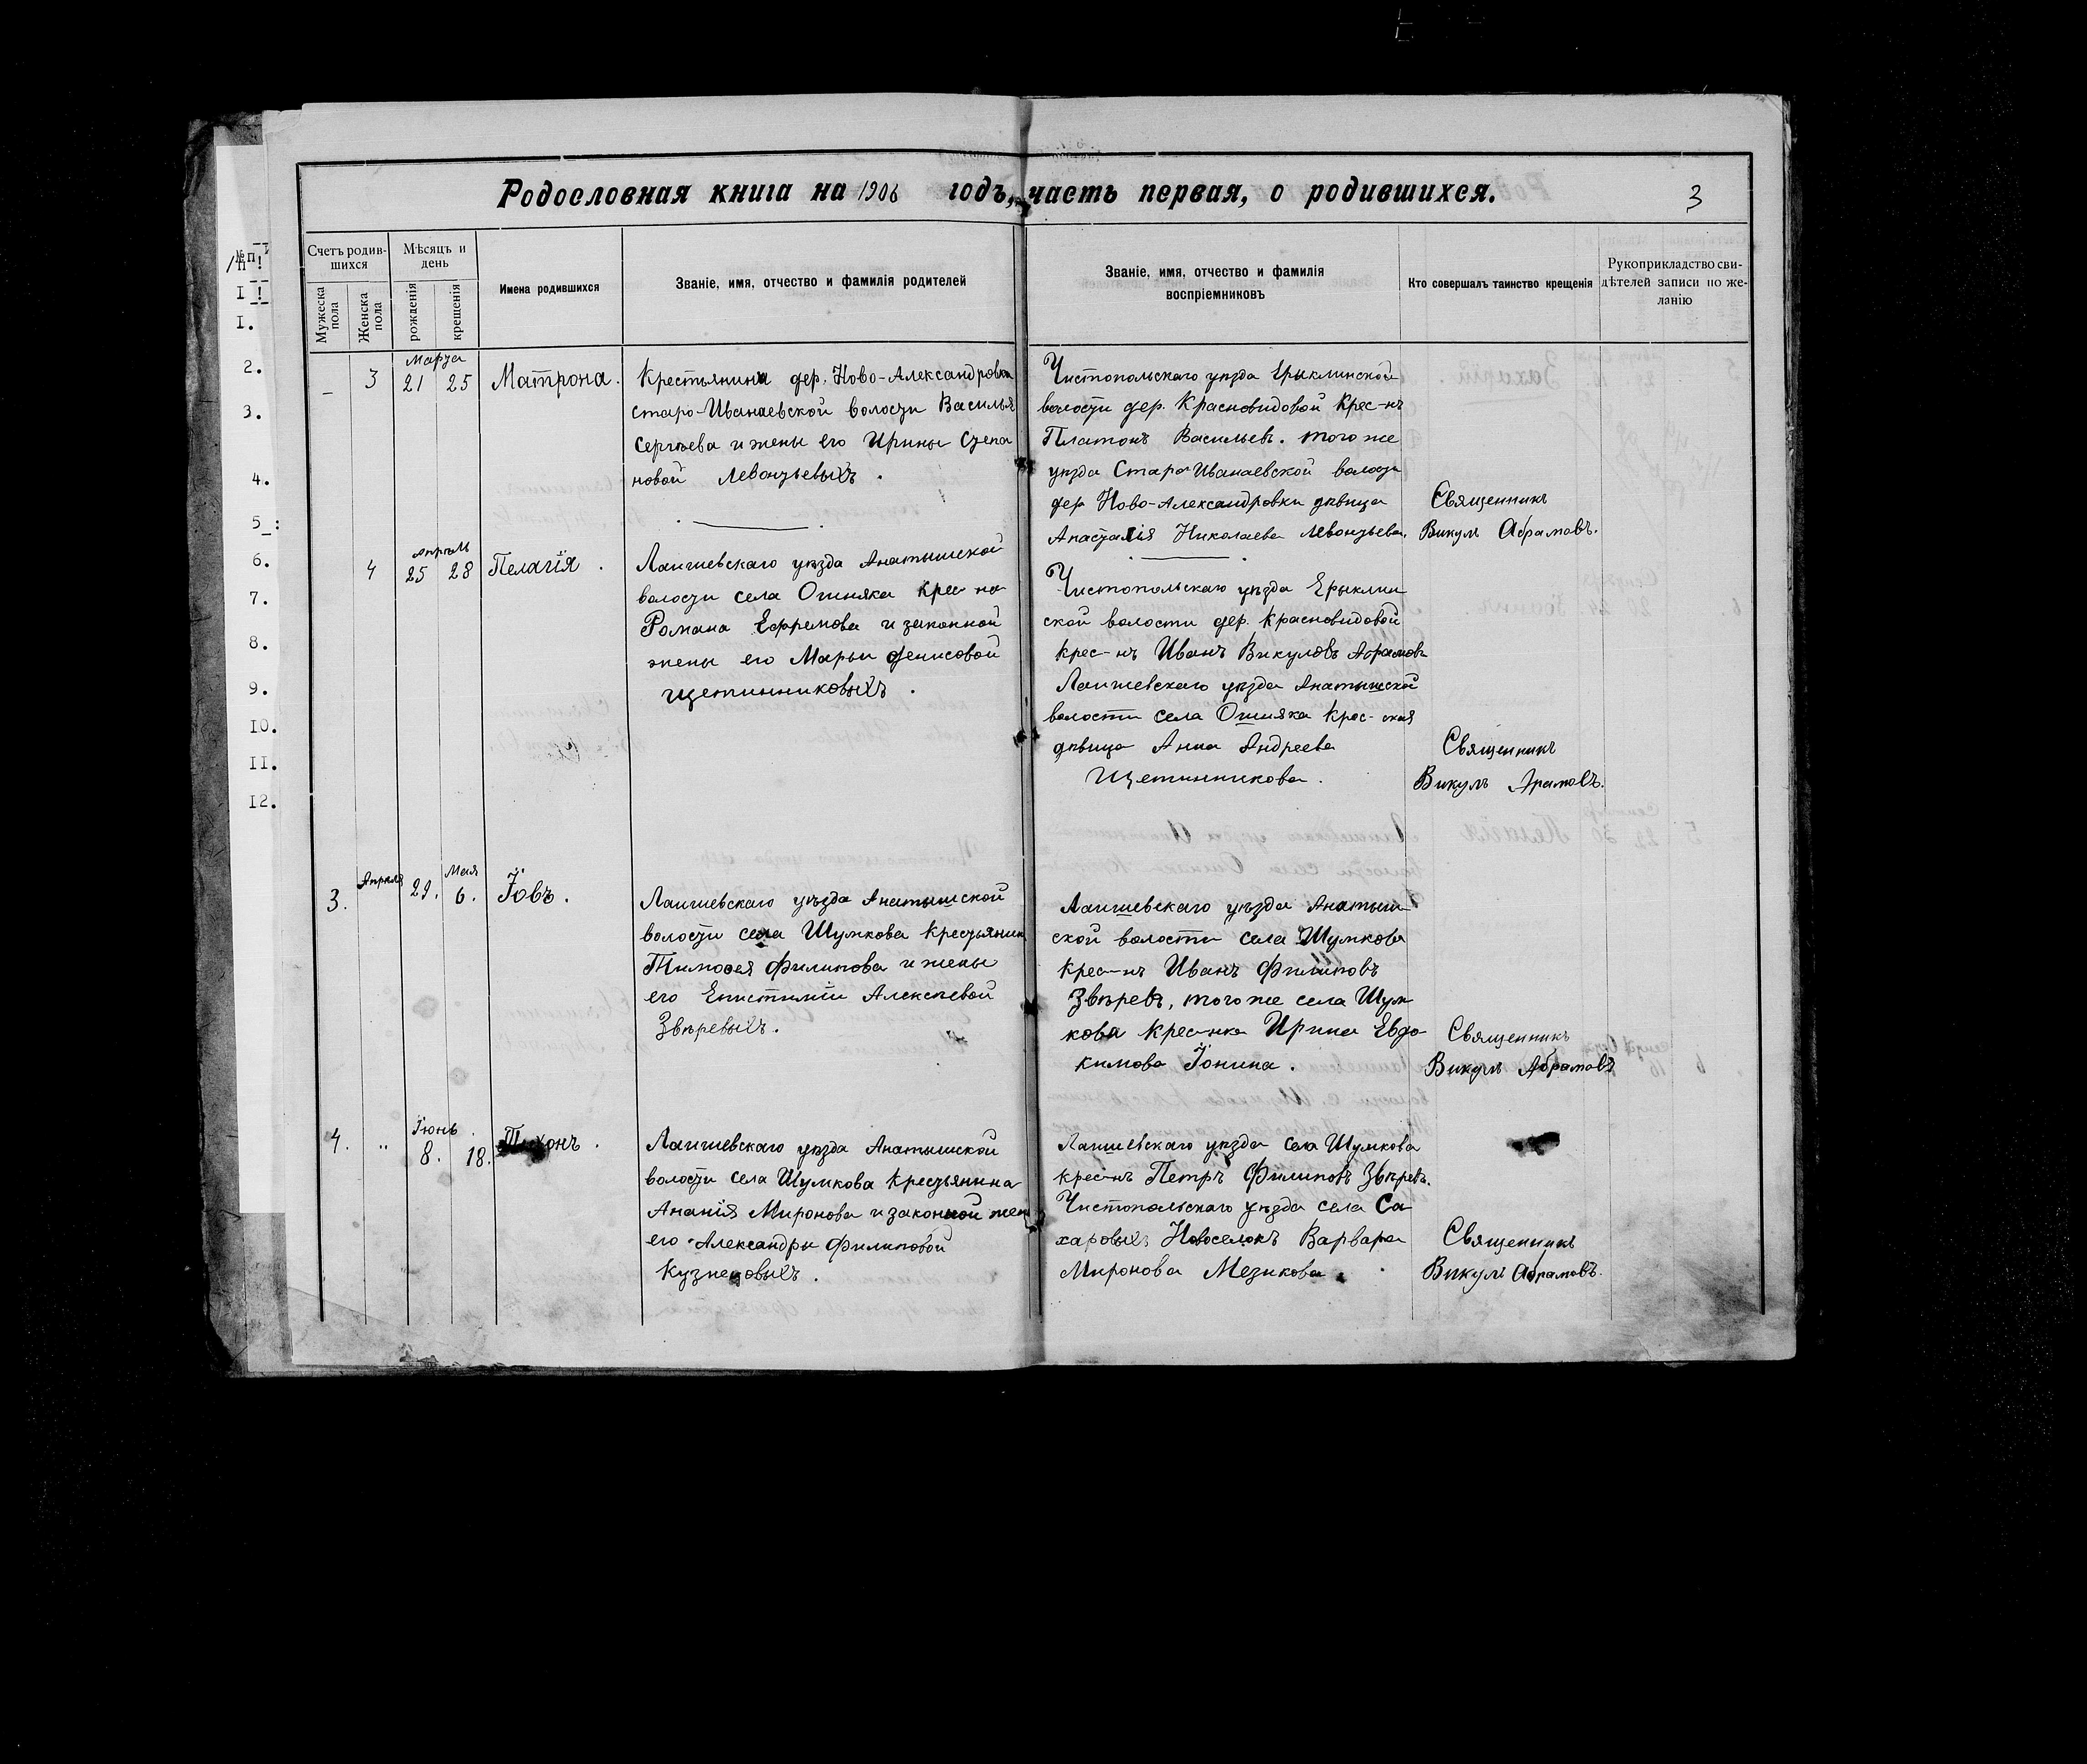 Родословная книга на 1906 годъ, часть первая, о родившихся.
3
Счетъ родив-
шихся
Мужеска пола
Женска пола
Мѣсяцъ и
день
рожденія
крещенія
Имена родившихся
Званіе, имя, отчество и фамилія родителей
Званіе, имя, отчество и фамилія
воспріемниковъ
Кто совершалъ таинство крещенія
Рукоприкладство сви-
дѣтелей записи по же-
ланію
I.
2.
3.
4.
5
6.
7.
8.
9.
10.
II.
12.
Марта
– 3 21 25 Матрона.
Крестьянина дер. Ново-Александровка
старо-Иванаевской волости Василья
Сергѣева и жены его Ирины Степа
новой Левонтьевыхъ.
Чистопольскаго уѣзда Ерыклинской
волости дер. Красновидовой Крес-нъ
Платонъ Васильевъ. того же
уѣзда Старо Иванаевской волости
дер Ново-Александровки дѣвица
Анастасія Николаева Левонтьева.
Священникъ
Викулъ Абрамовъ.
апрѣль
4 25 28 Пелагія.
Лаишевскаго уѣзда Анатышской
волости села Ошняка крес-на
Романа Ефремова и законной
жены его Марьи Денисовой
Щетинниковыхъ.
Чистопольскаго уѣзда Ерыклин
ской волости дер. Красновидовой
крес-нъ Иванъ Викуловъ Абрамовъ
Лаишевскаго уѣзда Анатышской
волости села Ошняка Крес-ская
дѣвица Анна Андреева
Щетинникова.
Священникъ
Викулъ Арамовъ.
Апреля Мая
3. 29. 6. Іовъ.
Лаишевскаго уѣзда Анатышской
волости села Шумкова крестьянин
Тимофея Филипова и жены
его Епистиміи Алексѣевой
Звѣревыхъ.
Лаишевскаго уѣзда Анатыш
ской волости села Шумкова
крес-нъ Иванъ Филиповъ
Звѣревъ, того же села Шум
кова крес-нка Ирина Евдо
кимова Іонина.
Священникъ
Викулъ Абрамовъ
Іюнь
4. „ 8. 18. Тихонъ.
Лаишевскаго уѣзда Анатышской
волости села Шумкова крестьянина
Ананія Миронова и законной жены
его Александры Филиповой
Кузнецовыхъ.
Лаишевскаго уѣзда села Шумкова
крес-нъ Петръ Филиповъ Звѣревъ.
Чистопольскаго уѣзда села Са
харовыхъ Новоселокъ Варвара
Миронова Мезикова.
Священникъ
Викулъ Абрамовъ.